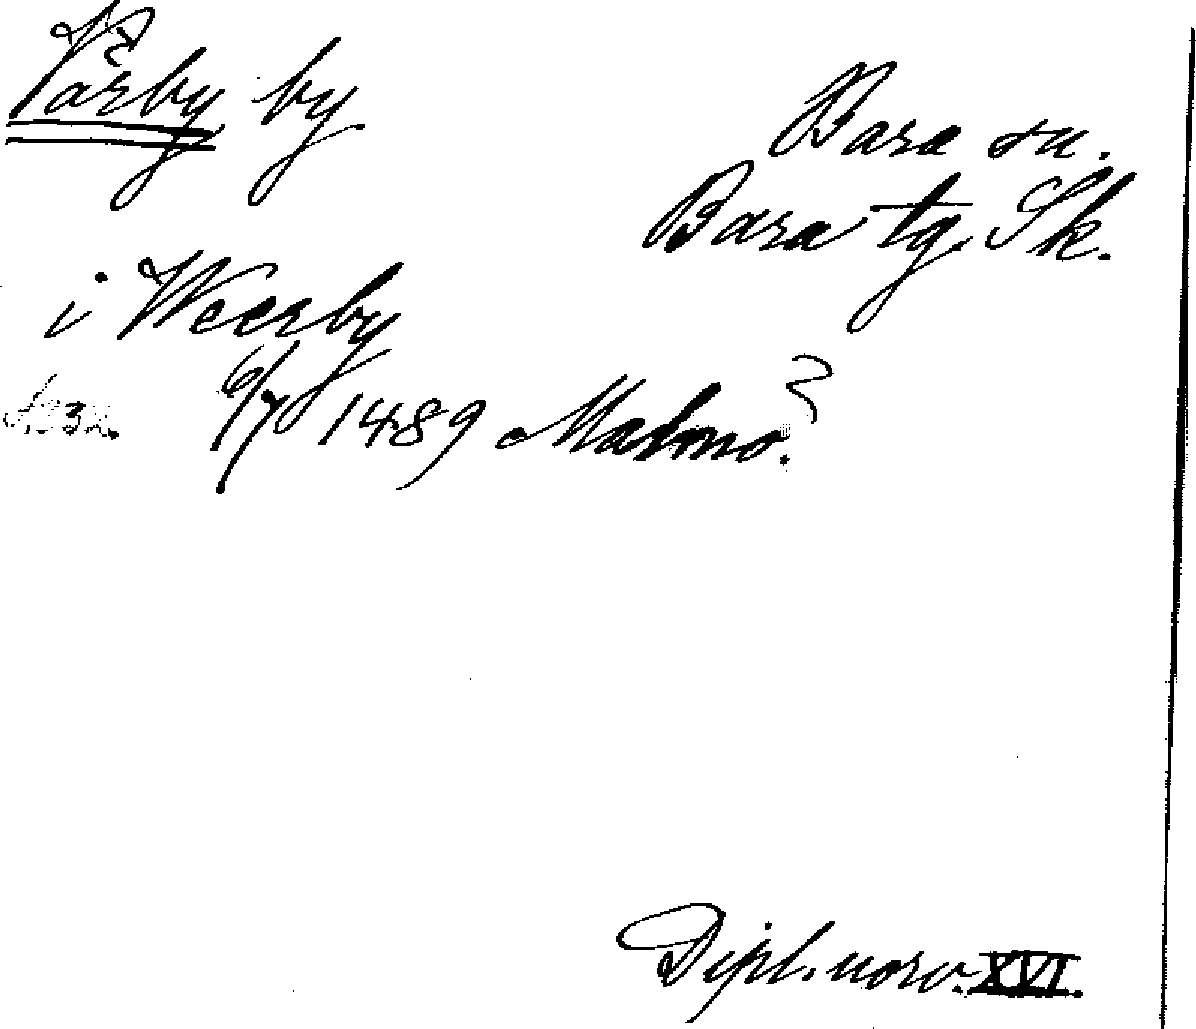 Vårby by
Bara sn.
Bara tg. Sk.
i Weerby
6/7 1489 Malmo?
Dipl. norv. XVI.